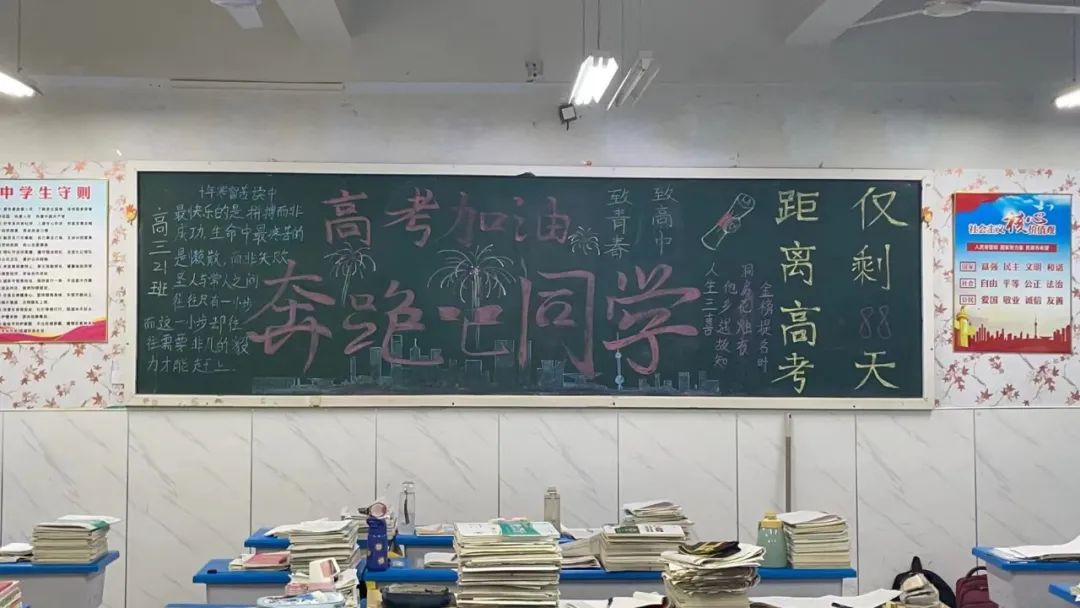 中学生守则
高三21班
十年寒窗苦读中
最快乐的是 拼搏而非
成功,生命中最痛苦的
是懒散,而非失败
圣人与常人之间
往往只有一小步
而这一小步却往
往需要非凡的毅
力才能赶上.
高考加油
奔跑吧同学
致青春
致高中
金榜提名时
洞房花烛夜
他乡遇故知
人生三喜
仅剩88天
距离高考
社会主义核心价值观
人民有信仰 国家有力量 民族有希望
国家 富强 民主 文明 和谐
社会 自由 平等 公正 法治
公民 爱国 敬业 诚信 友善